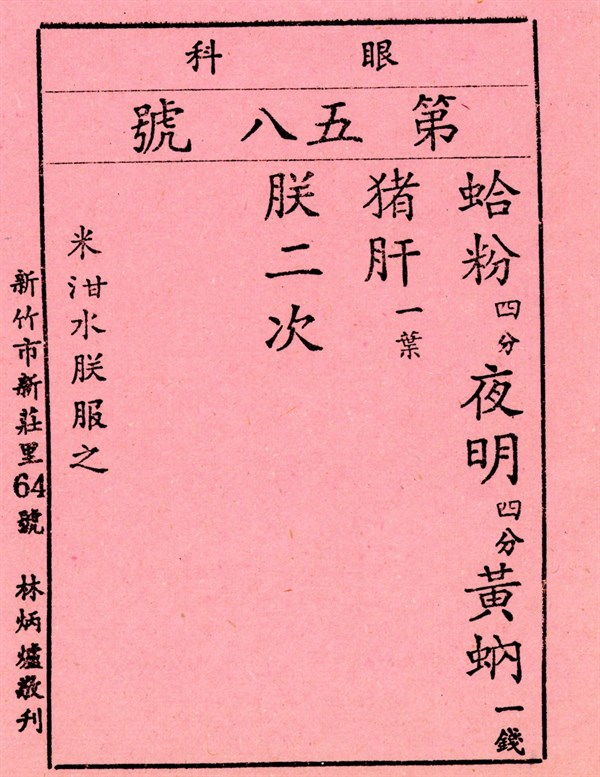 眼科
第五八號
蛤粉四分夜明四分黃蚋一錢
猪肝一葉
朕二次
米泔水朕服之
新竹市新莊里64號 林炳爐敬刊